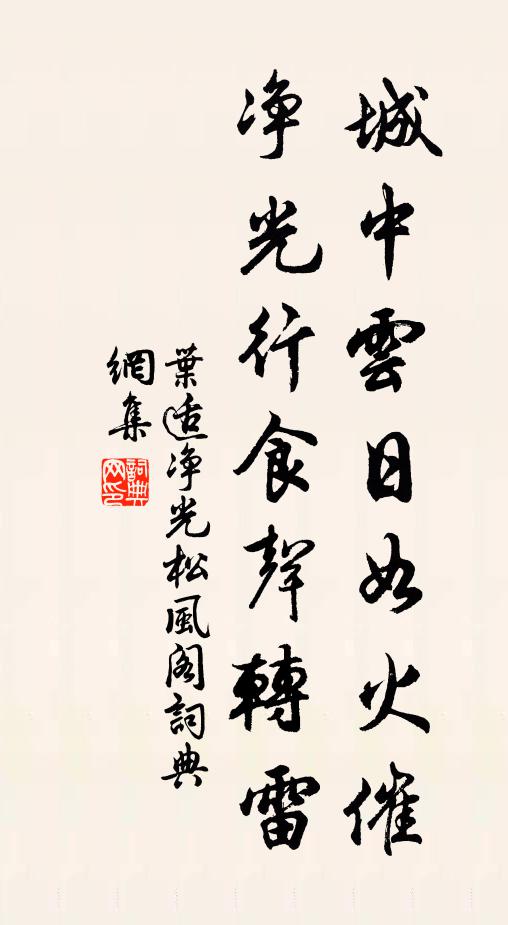 城中雲日如火催
净光行食聲轉雷
葉適净光松風阁詞典
網集
詞典
网印